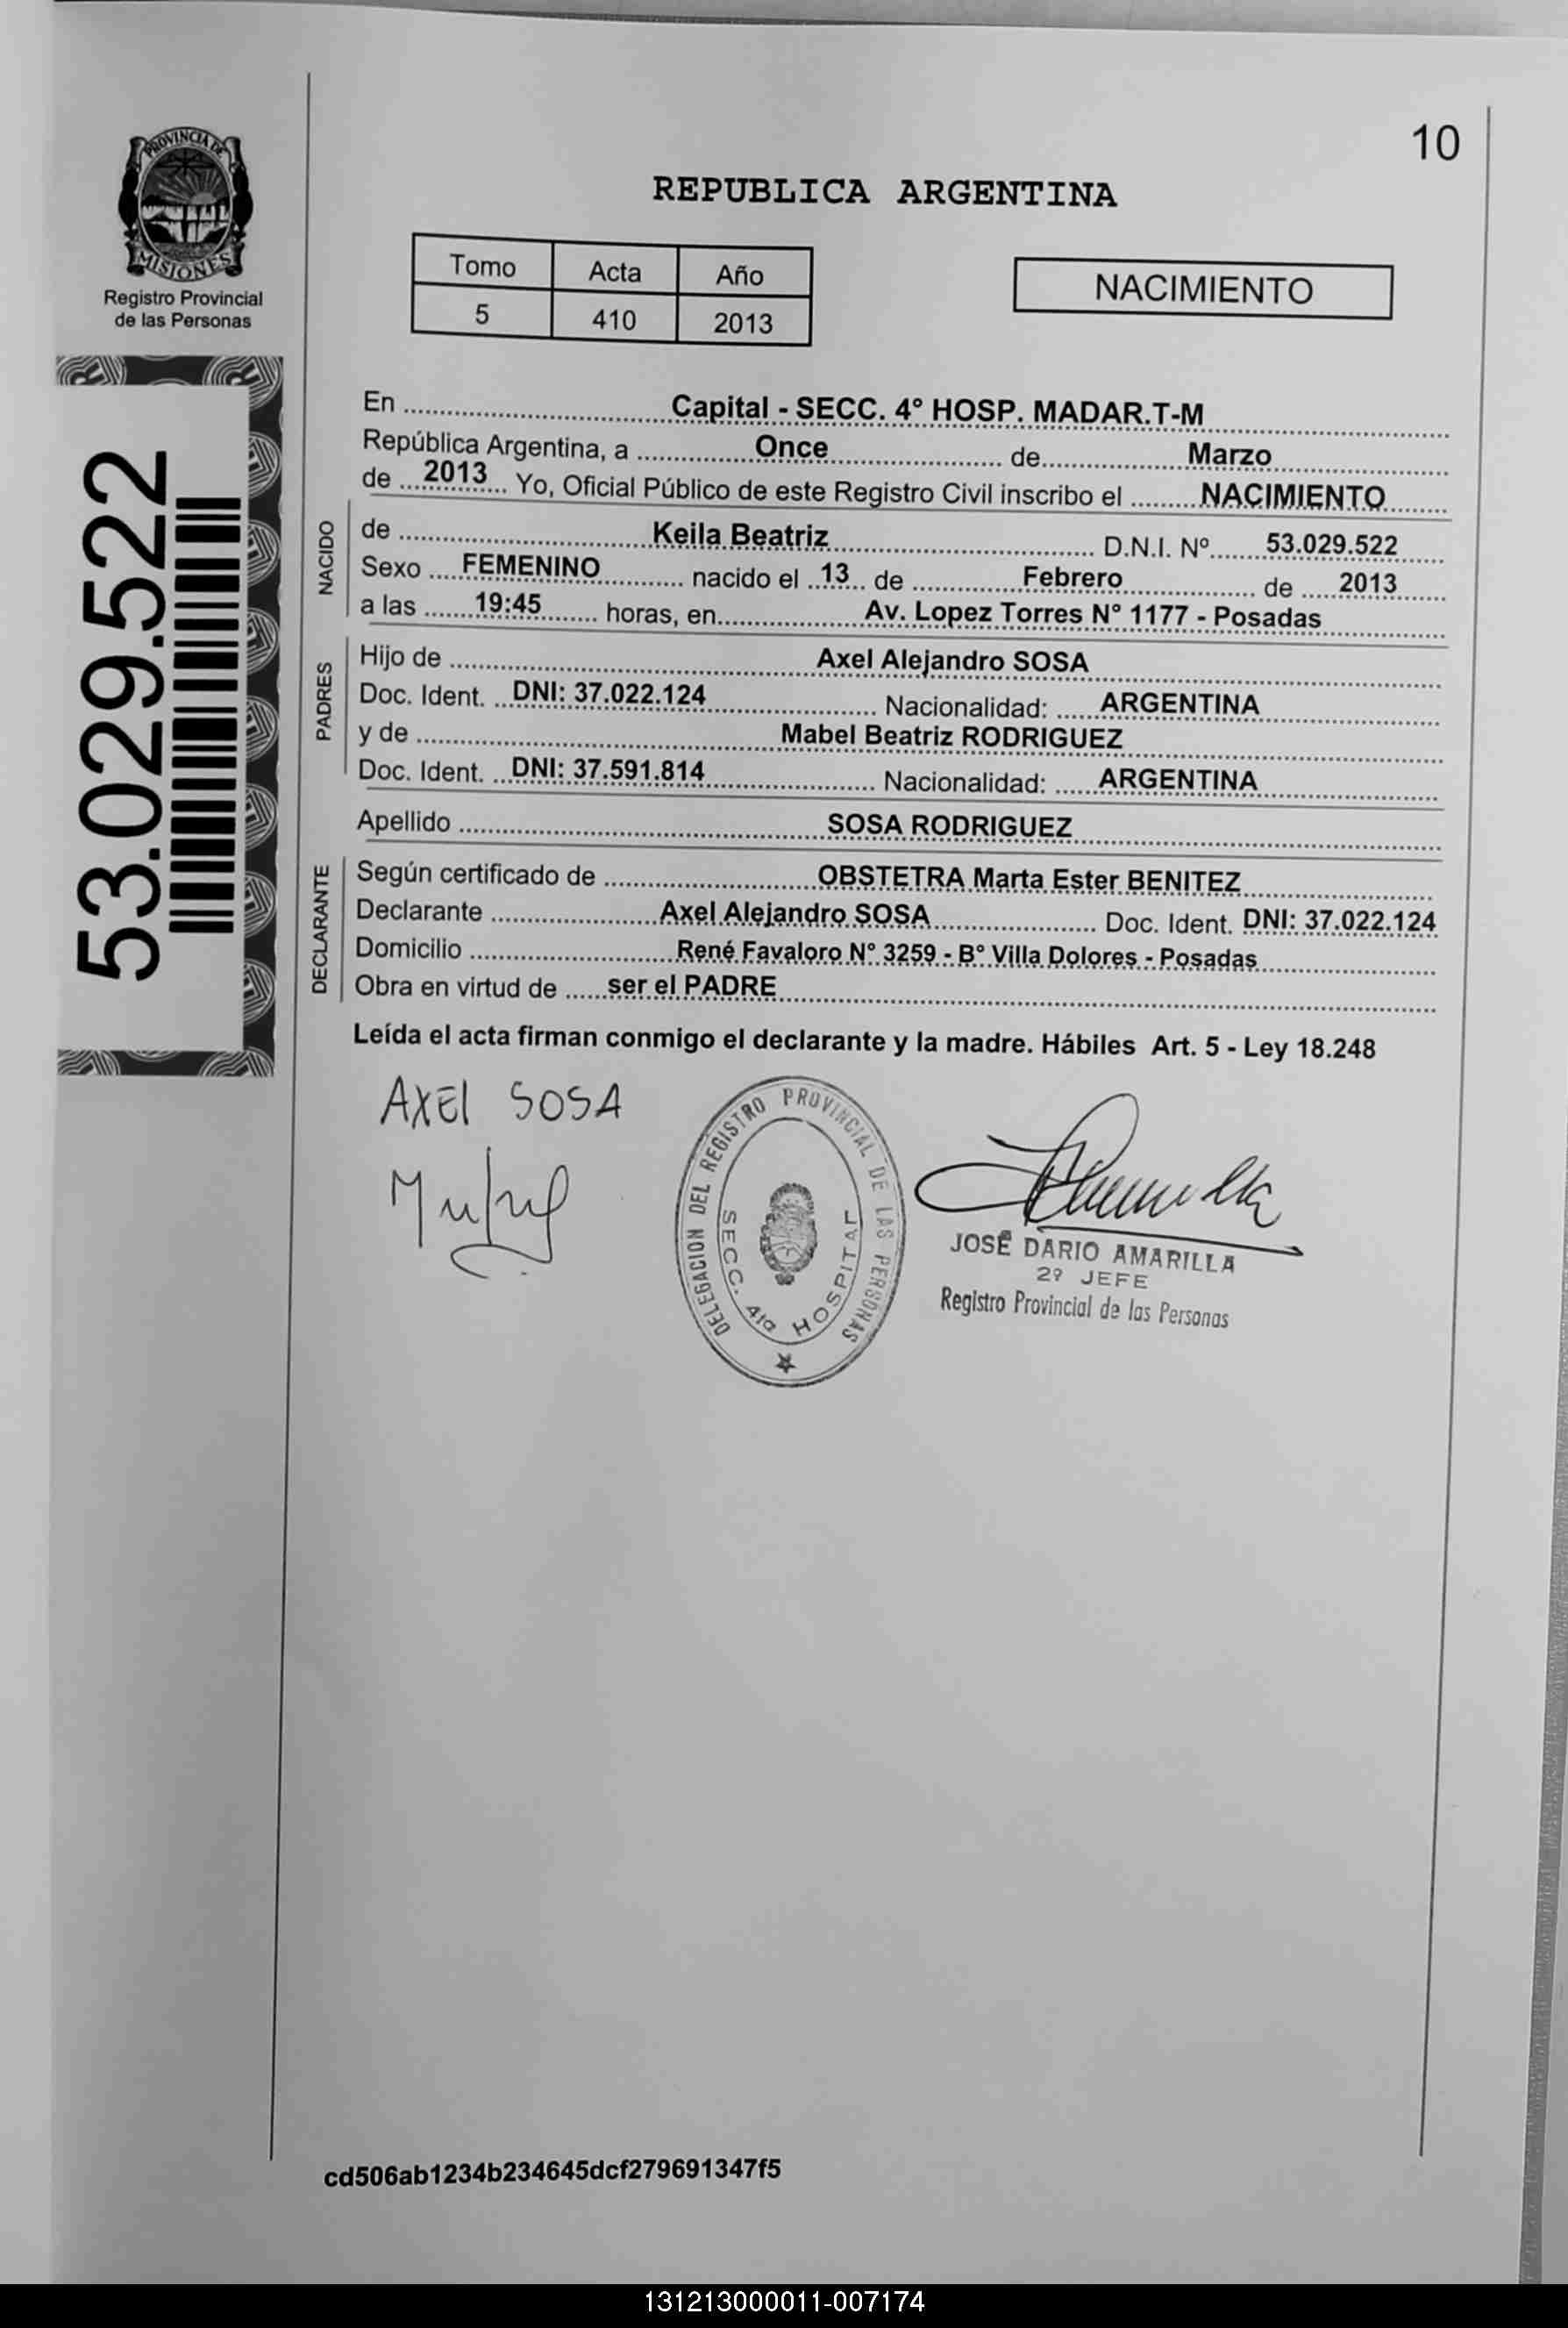 10
PROVINCIA DE
MISIONES
Registro Provincial
de las Personas
53.029.522
REPUBLICA ARGENTINA
Tomo Acta Año
5 410 2013
NACIMIENTO
En Capital - SECC. 4° HOSP. MADAR.T-M
República Argentina, a Once de Marzo
de 2013 Yo, Oficial Público de este Registro Civil inscribo el NACIMIENTO
NACIDO
de Keila Beatriz D.N.I. Nº 53.029.522
Sexo FEMENINO nacido el 13 de Febrero de 2013
a las 19:45 horas, en Av. Lopez Torres N° 1177 - Posadas
PADRES
Hijo de Axel Alejandro SOSA
Doc. Ident. DNI: 37.022.124 Nacionalidad: ARGENTINA
y de Mabel Beatriz RODRIGUEZ
Doc. Ident. DNI: 37.591.814 Nacionalidad: ARGENTINA
Apellido SOSA RODRIGUEZ
DECLARANTE
Según certificado de OBSTETRA Marta Ester BENITEZ
Declarante Axel Alejandro SOSA Doc. Ident. DNI: 37.022.124
Domicilio René Favaloro N° 3259 - B° Villa Dolores - Posadas
Obra en virtud de ser el PADRE
Leída el acta firman conmigo el declarante y la madre. Hábiles Art. 5 - Ley 18.248
AXEl SOSA
DELEGACION DEL REGISTRO PROVINCIAL DE LAS PERSONAS
SECC. 4ta HOSPITAL
JOSÉ DARIO AMARILLA
2º JEFE
Registro Provincial de las Personas
cd506ab1234b234645dcf279691347f5
131213000011-007174